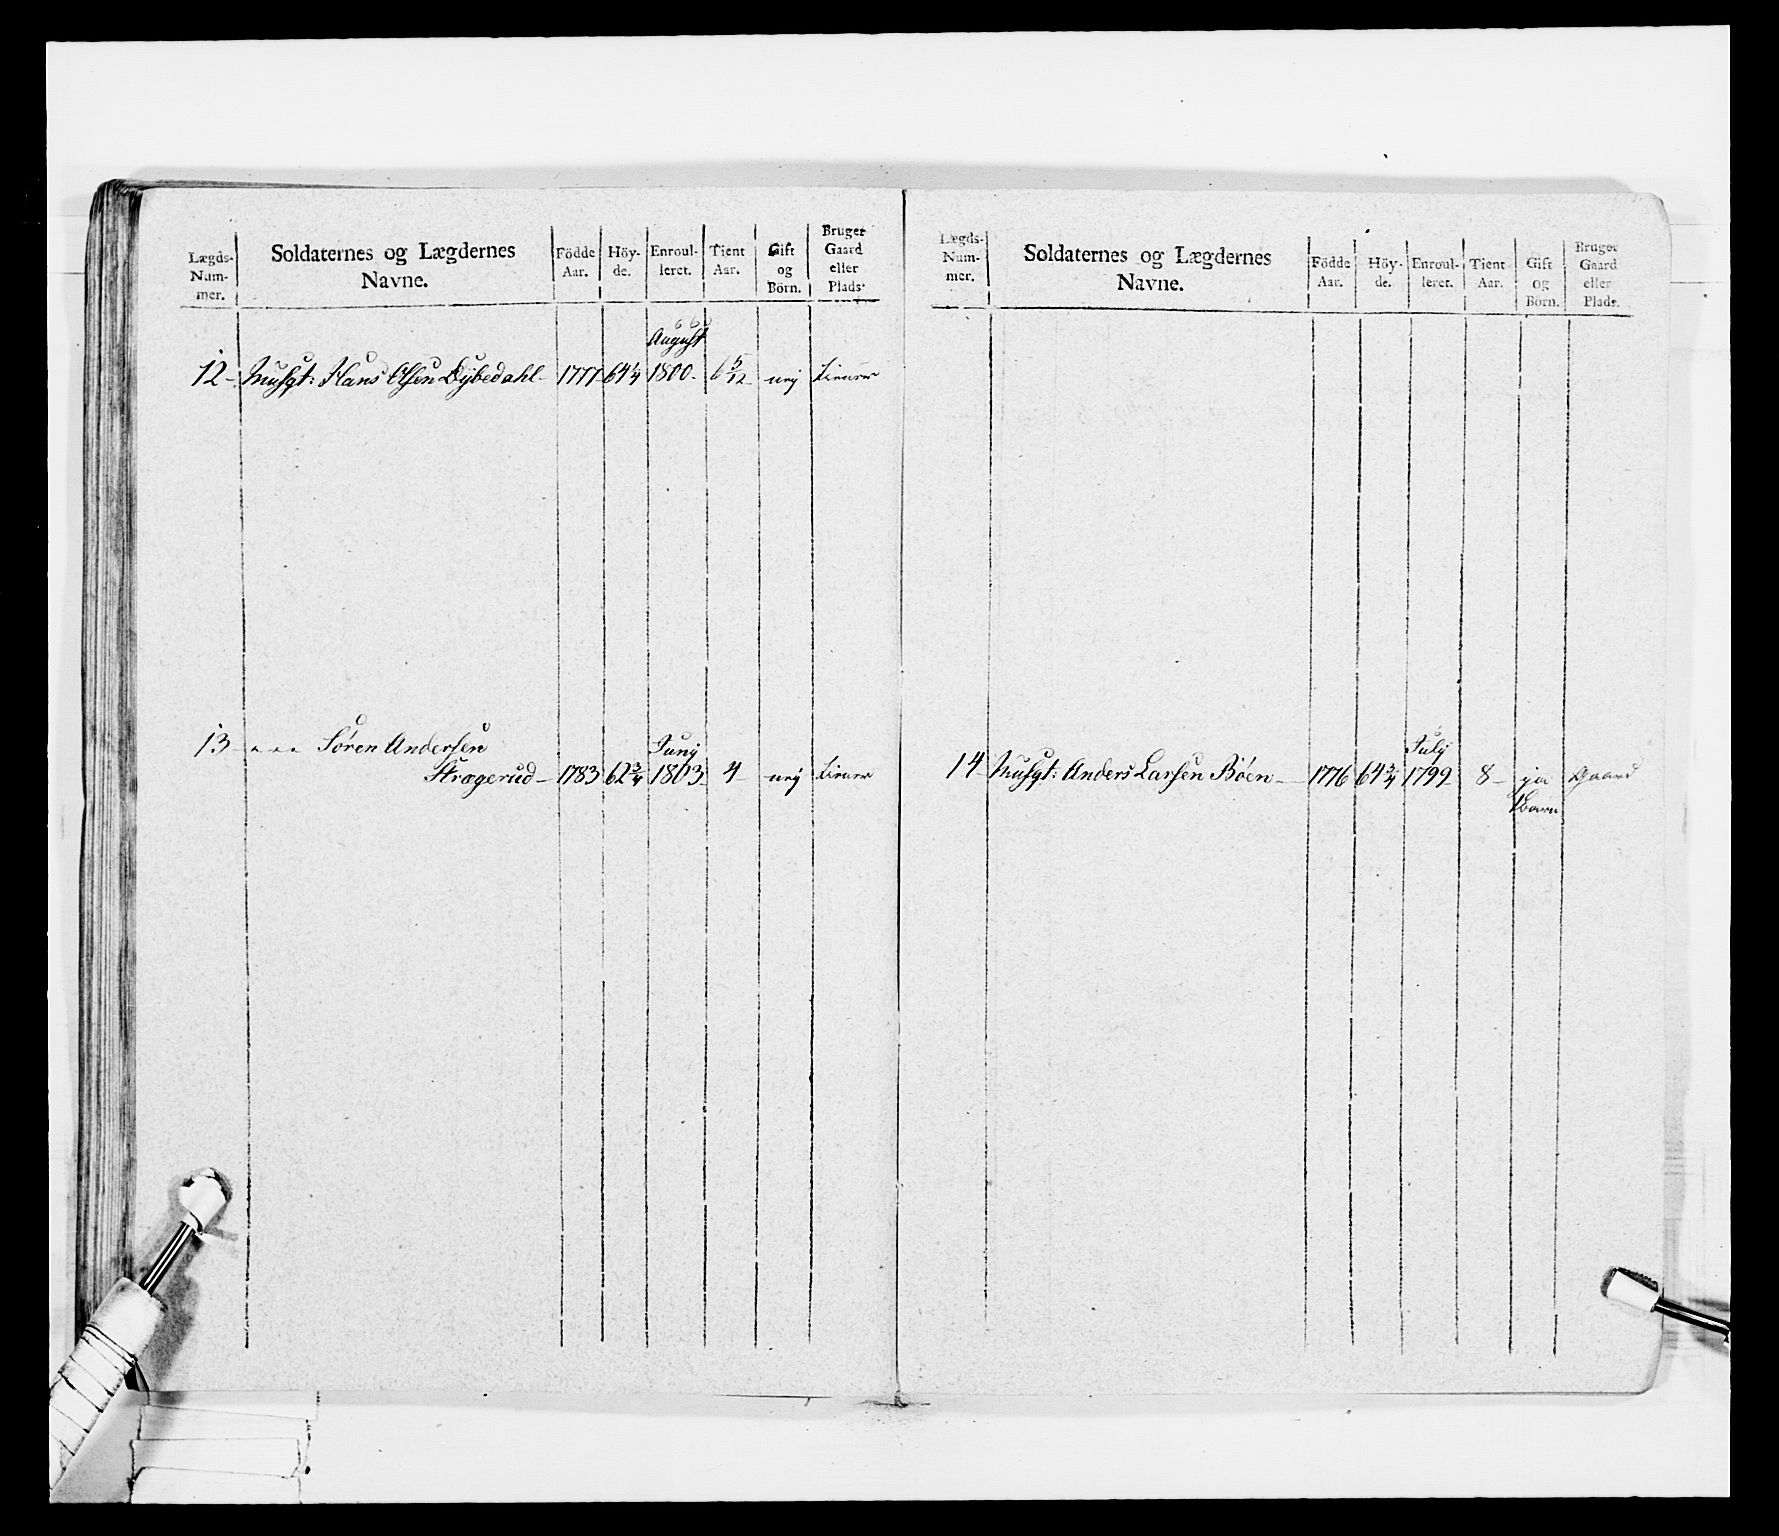 Lægds-
Num-
mer.
Soldaternes og Lægdernes
Navne.
Födde
Aar.
Höy-
de.
Enroul-
leret.
Tient
Aar.
Gift
og
Börn.
Bruger
Gaard
eller
Plads.
August
12 - Musqt: Hans Olsen Dybedahl - 1777 64 1/4 1800 - 6 5/12 nej Tiener
13 Sören Andersen Junj
Stragerud - 1783 62 3/4 1803 - 4 - nej Tiener
Lægds-
Num-
mer.
Soldaternes og Lægdernes
Navne.
Födde
Aar.
Höy-
de.
Enroul-
leret.
Tient
Aar.
Gift
og
Börn.
Bruger
Gaard
eller
Plads.
Julj
14 Musqt: Anders Larsen Böen - 1776 64 3/4 1799 8 - ja Gaard
1 Barn